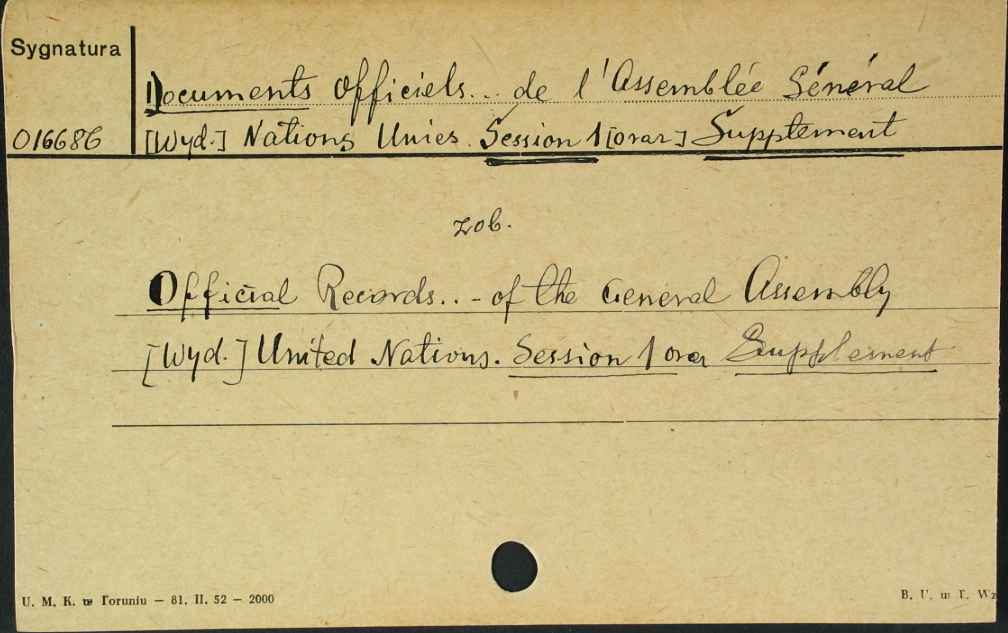 Sygnatura
Documents Officiels... de l'Assemblée Général
016686
[Wyd.] Nations Unies. Session 1 [oraz] Supplement
zob.
Official Records.. - of the General Assembly
[Wyd.] United Nations. Session 1 oraz Supplement
U. M. K. w Toruniu — 81. II. 52 — 2000
B. U. w T. Wz